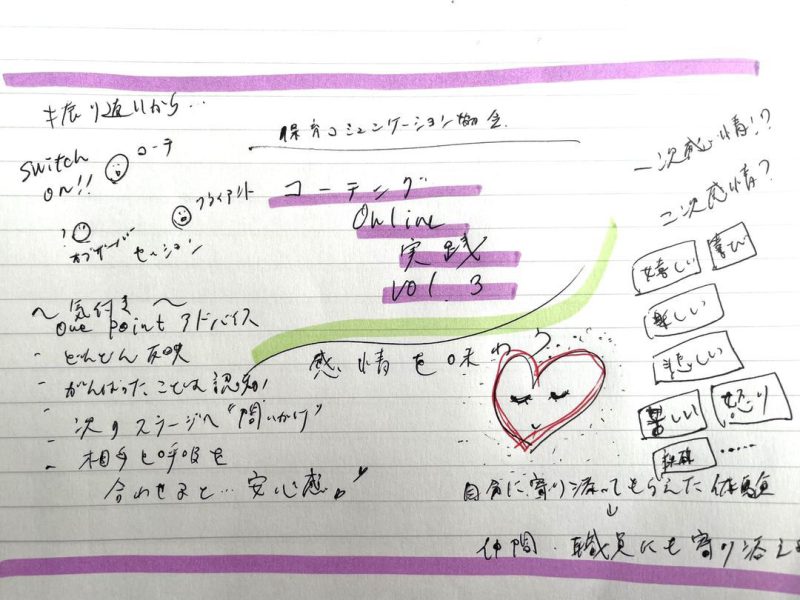 振り返りから…
Switch
ON!!
コーチ
クライアント
オブザーバー
セッション
保育コミュニケーション協会
コーチング
Online
実践
vol. 3
〜気付き〜
one point アドバイス
- どんどん 反映
- がんばったことは 認知!
- 次のステージへ "問いかけ"
- 相手と呼吸を
合わせると… 安心感
感情を味わう…
自分に寄り添ってもらえた体験
↓
仲間・職員にも寄り添える
一次感情!?
二次感情?
嬉しい
喜び
楽しい
悲しい
苦しい
怒り
……